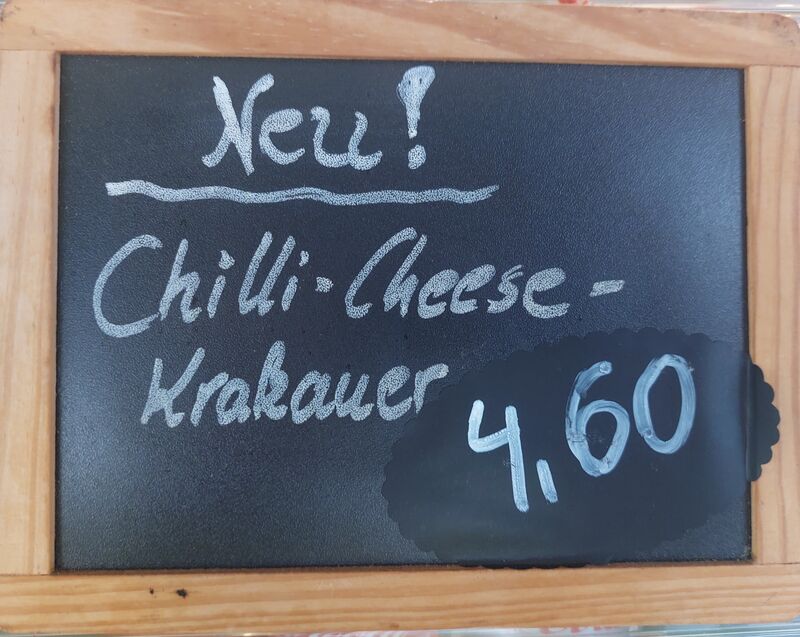 Neu!
Chilli-Cheese-
Krakauer
4,60